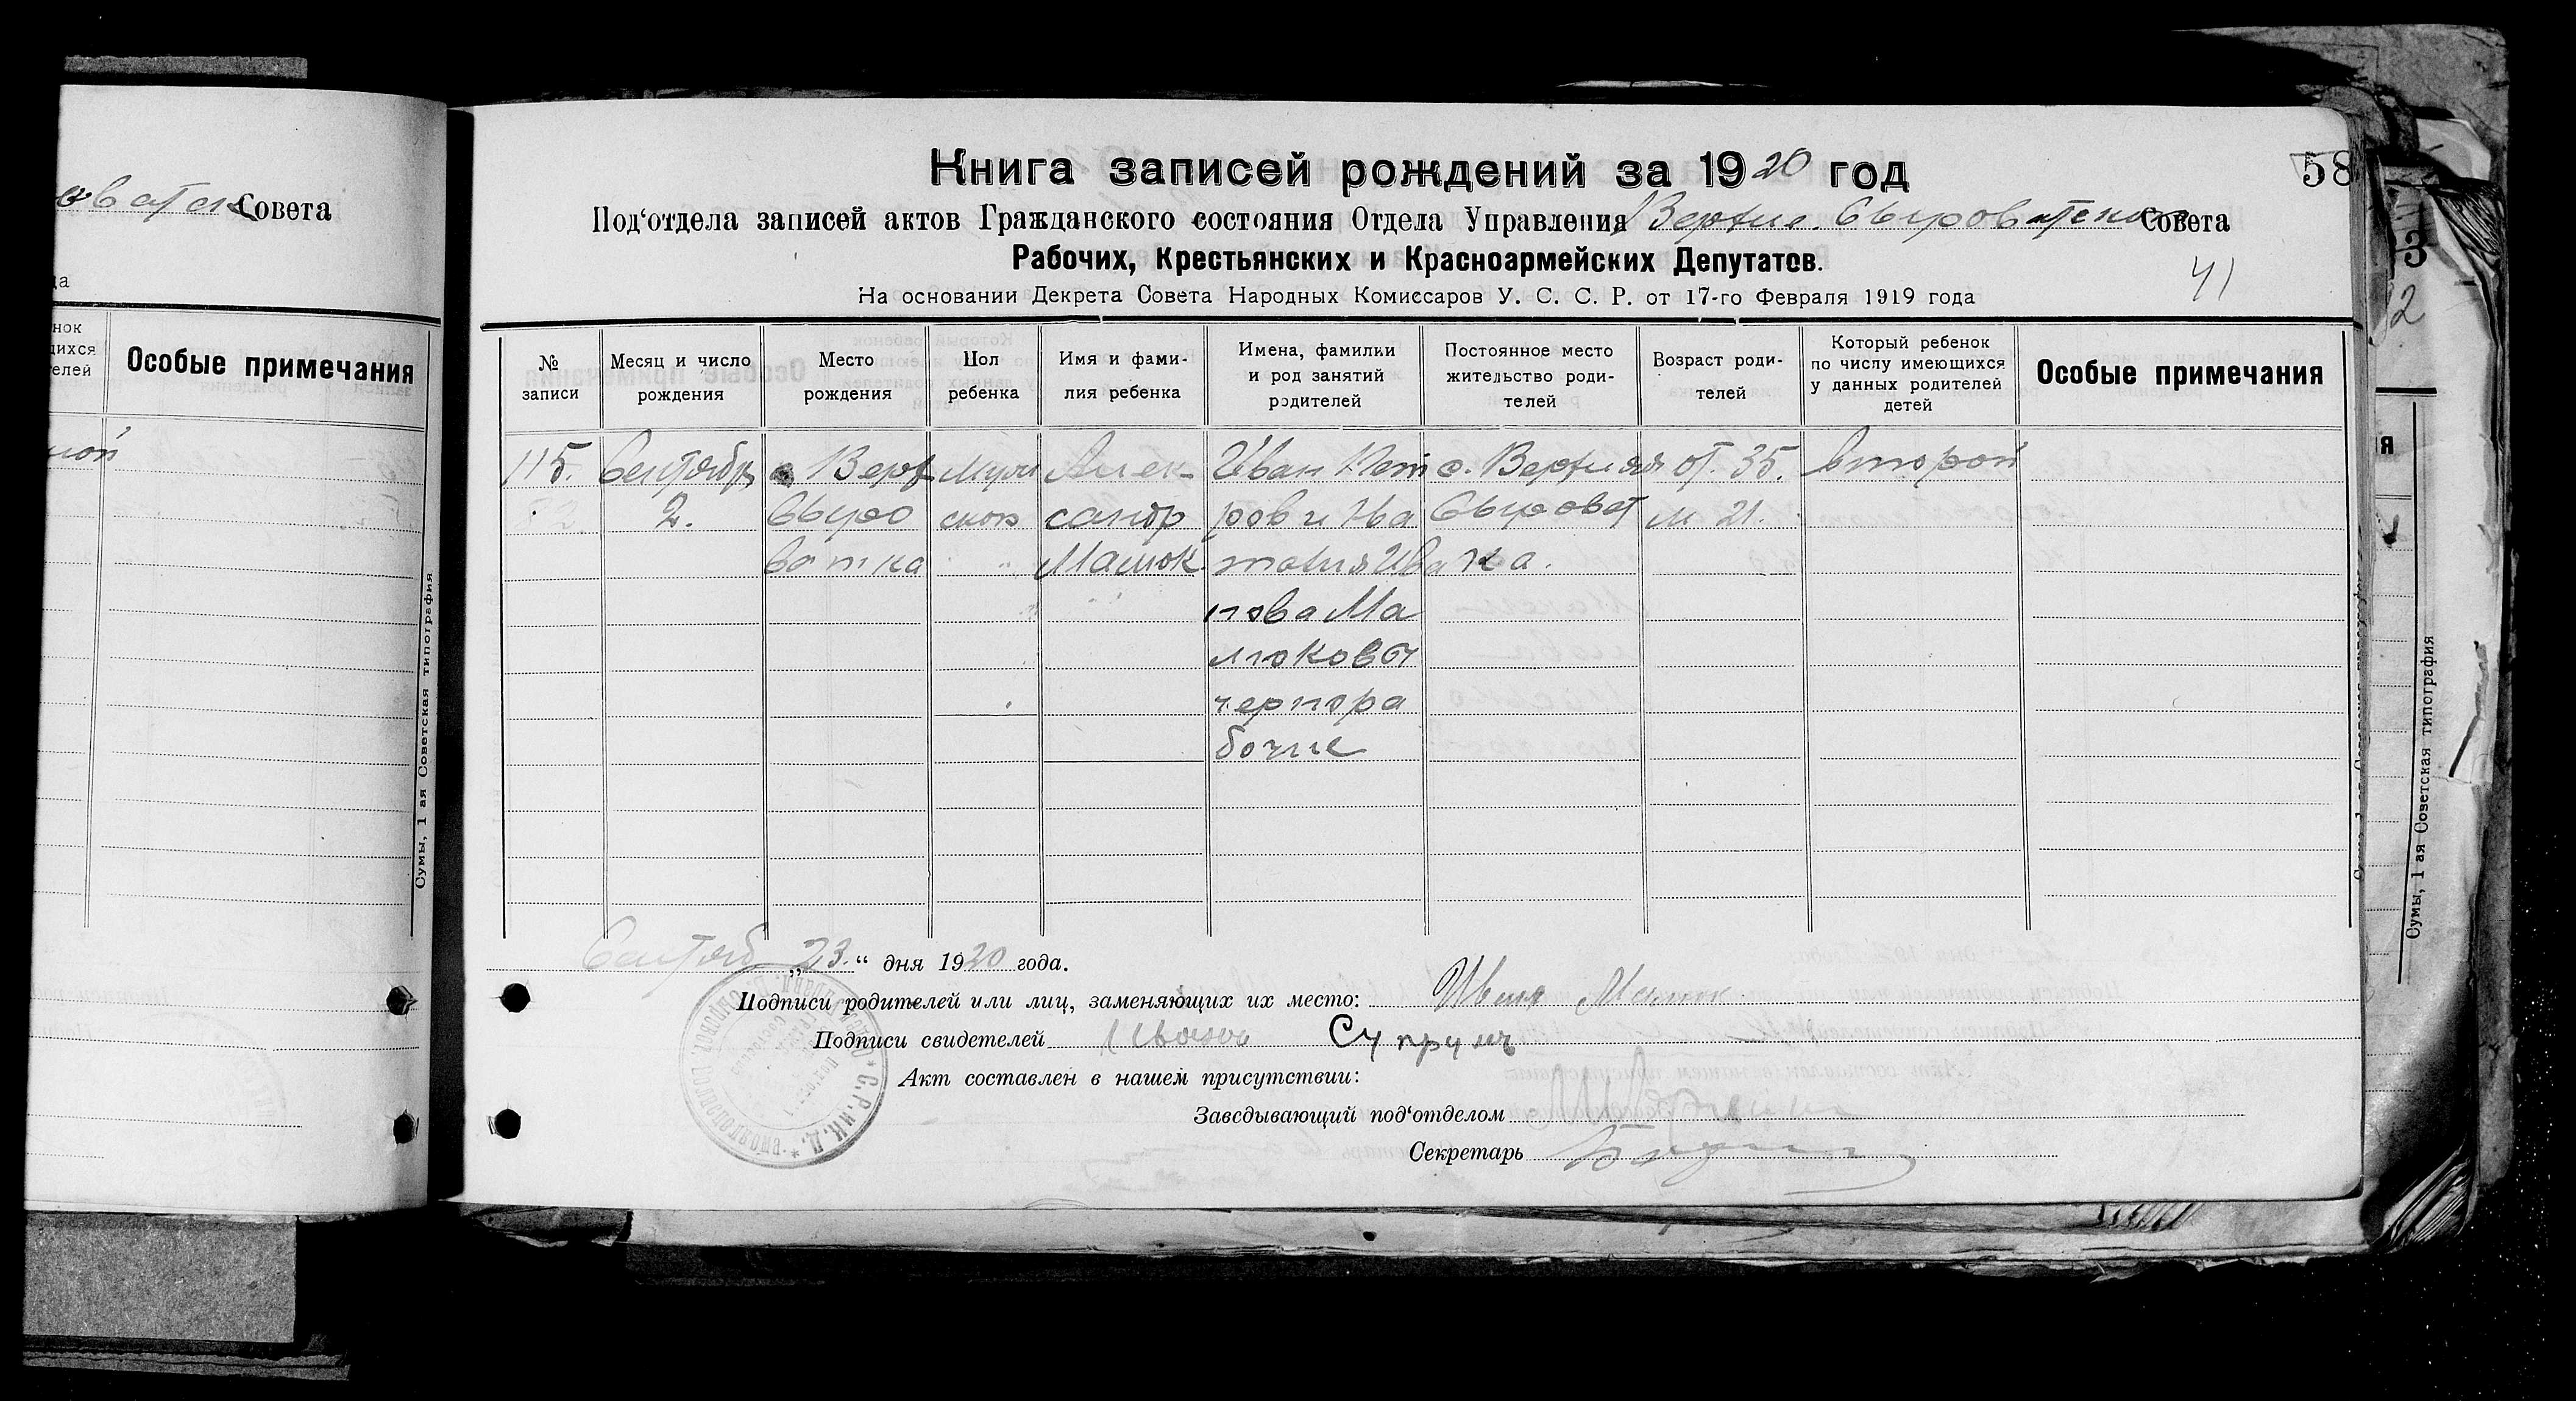 Совета
Особые примечания
Сумы, 1 ая Советская типография
58
Книга записей рождений за 1920 год
Под'отдела записей актов Гражданского состояния Отдела Управления Верхне. Сыроватского Совета
Рабочих, Крестьянских и Красноармейских Депутатов.
41
На основании Декрета Совета Народных Комиссаров У. С. С. Р. от 17-го Февраля 1919 года
№ записи
Месяц и число рождения
Место рождения
Пол ребенка
Имя и фами-
лия ребенка
Имена, фамилии
и род занятий
родителей
Постоянное место
жительство роди-
телей
Возраст роди-
телей
Который ребенок
по числу имеющихся
у данных родителей
детей
Особые примечания
115. Сентябр с Верх Муж Алек- Иван Пет с. Верхняя от. 35. второй
2. Сыро ской сандр ров и На Сыроват м 21.
ватка Малюк талия Ива ка.
нова Ма
люковы
чернора
бочие
Сентяб. „23.“ дня 1920 года.
Подписи родителей или лиц, заменяющих их место: Иван Малюк
Подписи свидетелей Иван Супрун
Акт составлен в нашем присутствии:
Заведывающий под'отделом
Секретарь
Сумы, 1 ая Советская типография